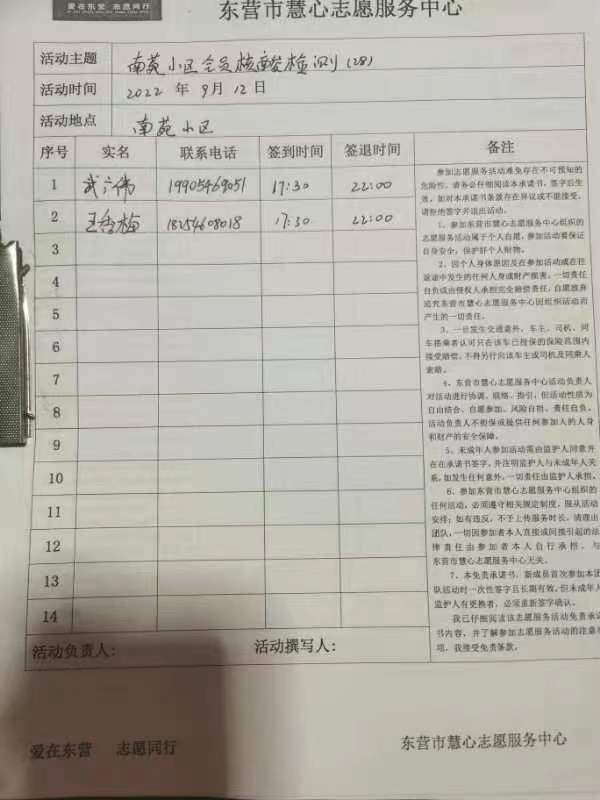 爱在东营 志愿同行
东营市慧心志愿服务中心
活动主题 南苑小区全员核酸检测(28)
活动时间 2022 年 9月 12日
活动地点 南苑小区
序号 实名 联系电话 签到时间 签退时间 备注
1 武广伟 19905469051 17:30 22:00
2 王香梅 18254608018 17:30 22:00
3
4
5
6
7
8
9
10
11
12
13
14
参加志愿服务活动难免存在不可预知的
危险性，请务必仔细阅读本承诺书，签字后生
效，如对本承诺书条款存在异议或不能接受，
请拒绝签字并退出活动。
1、参加东营市慧心志愿服务中心组织的
志愿服务活动属于个人自愿，参加活动要保证
自身安全，保护好个人财物。
2、因个人身体原因及在参加活动或在往
返途中发生的任何人身或财产损害，一切责任
自负或由侵权人承担完全赔偿责任，自愿放弃
追究东营市慧心志愿服务中心因组织活动而
产生的一切责任。
3、一旦发生交通意外，车主、司机、同
车搭乘者认可只在该车已投保的保险范围内
接受赔偿，不得另行向该车主或司机及同乘人
索赔。
4、东营市慧心志愿服务中心活动负责人
对活动进行协调、联络、指引，但活动性质为
自由结合、自愿参加、风险自担、责任自负。
活动负责人不担保或提供任何参加人的人身
和财产的安全保障。
5、未成年人参加活动需由监护人同意并
在在承诺书签字，并注明监护人与未成年人关
系，如发生任何意外，一切责任由监护人承担。
6、参加东营市慧心志愿服务中心组织的
任何活动，必须遵守相关规定制度，服从活动
安排；如有违反，不予上传服务时长，清理出
团队，一切因参加者本人直接或间接引起的法
律责任由参加者本人自行承担，与
东营市慧心志愿服务中心无关。
7、本免责承诺书，新成员首次参加本团
队活动时一次性签字且长期有效，但未成年人
监护人有更换者，必须重新签字确认。
我已仔细阅读该志愿服务活动免责承诺
书内容，并了解参加志愿服务活动的注意事
项，我接受免责条款。
活动负责人： 活动撰写人：
爱在东营 志愿同行 东营市慧心志愿服务中心